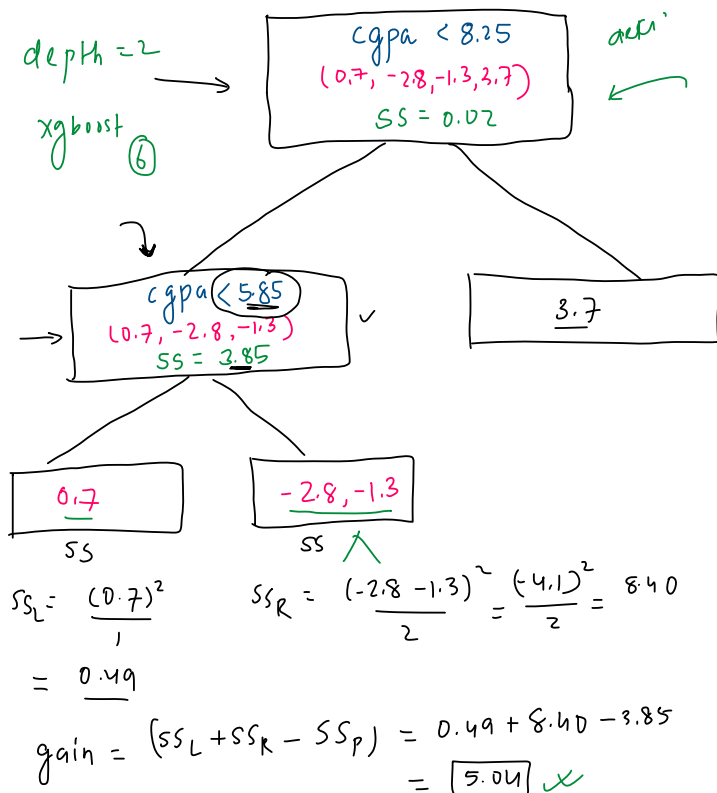 depth = 2
xgboost
6
cgpa < 8.25
(0.7, -2.8, -1.3, 3.7)
SS = 0.02
cgpa < 5.85
(0.7, -2.8, -1.3)
SS = 3.85
3.7
0.7
-2.8, -1.3
SS
SS
SS_L = (0.7)² / 1
= 0.49
SS_R = (-2.8 -1.3)² / 2 = (-4.1)² / 2 = 8.40
gain = (SS_L + SS_R - SS_P) = 0.49 + 8.40 - 3.85
= 5.04